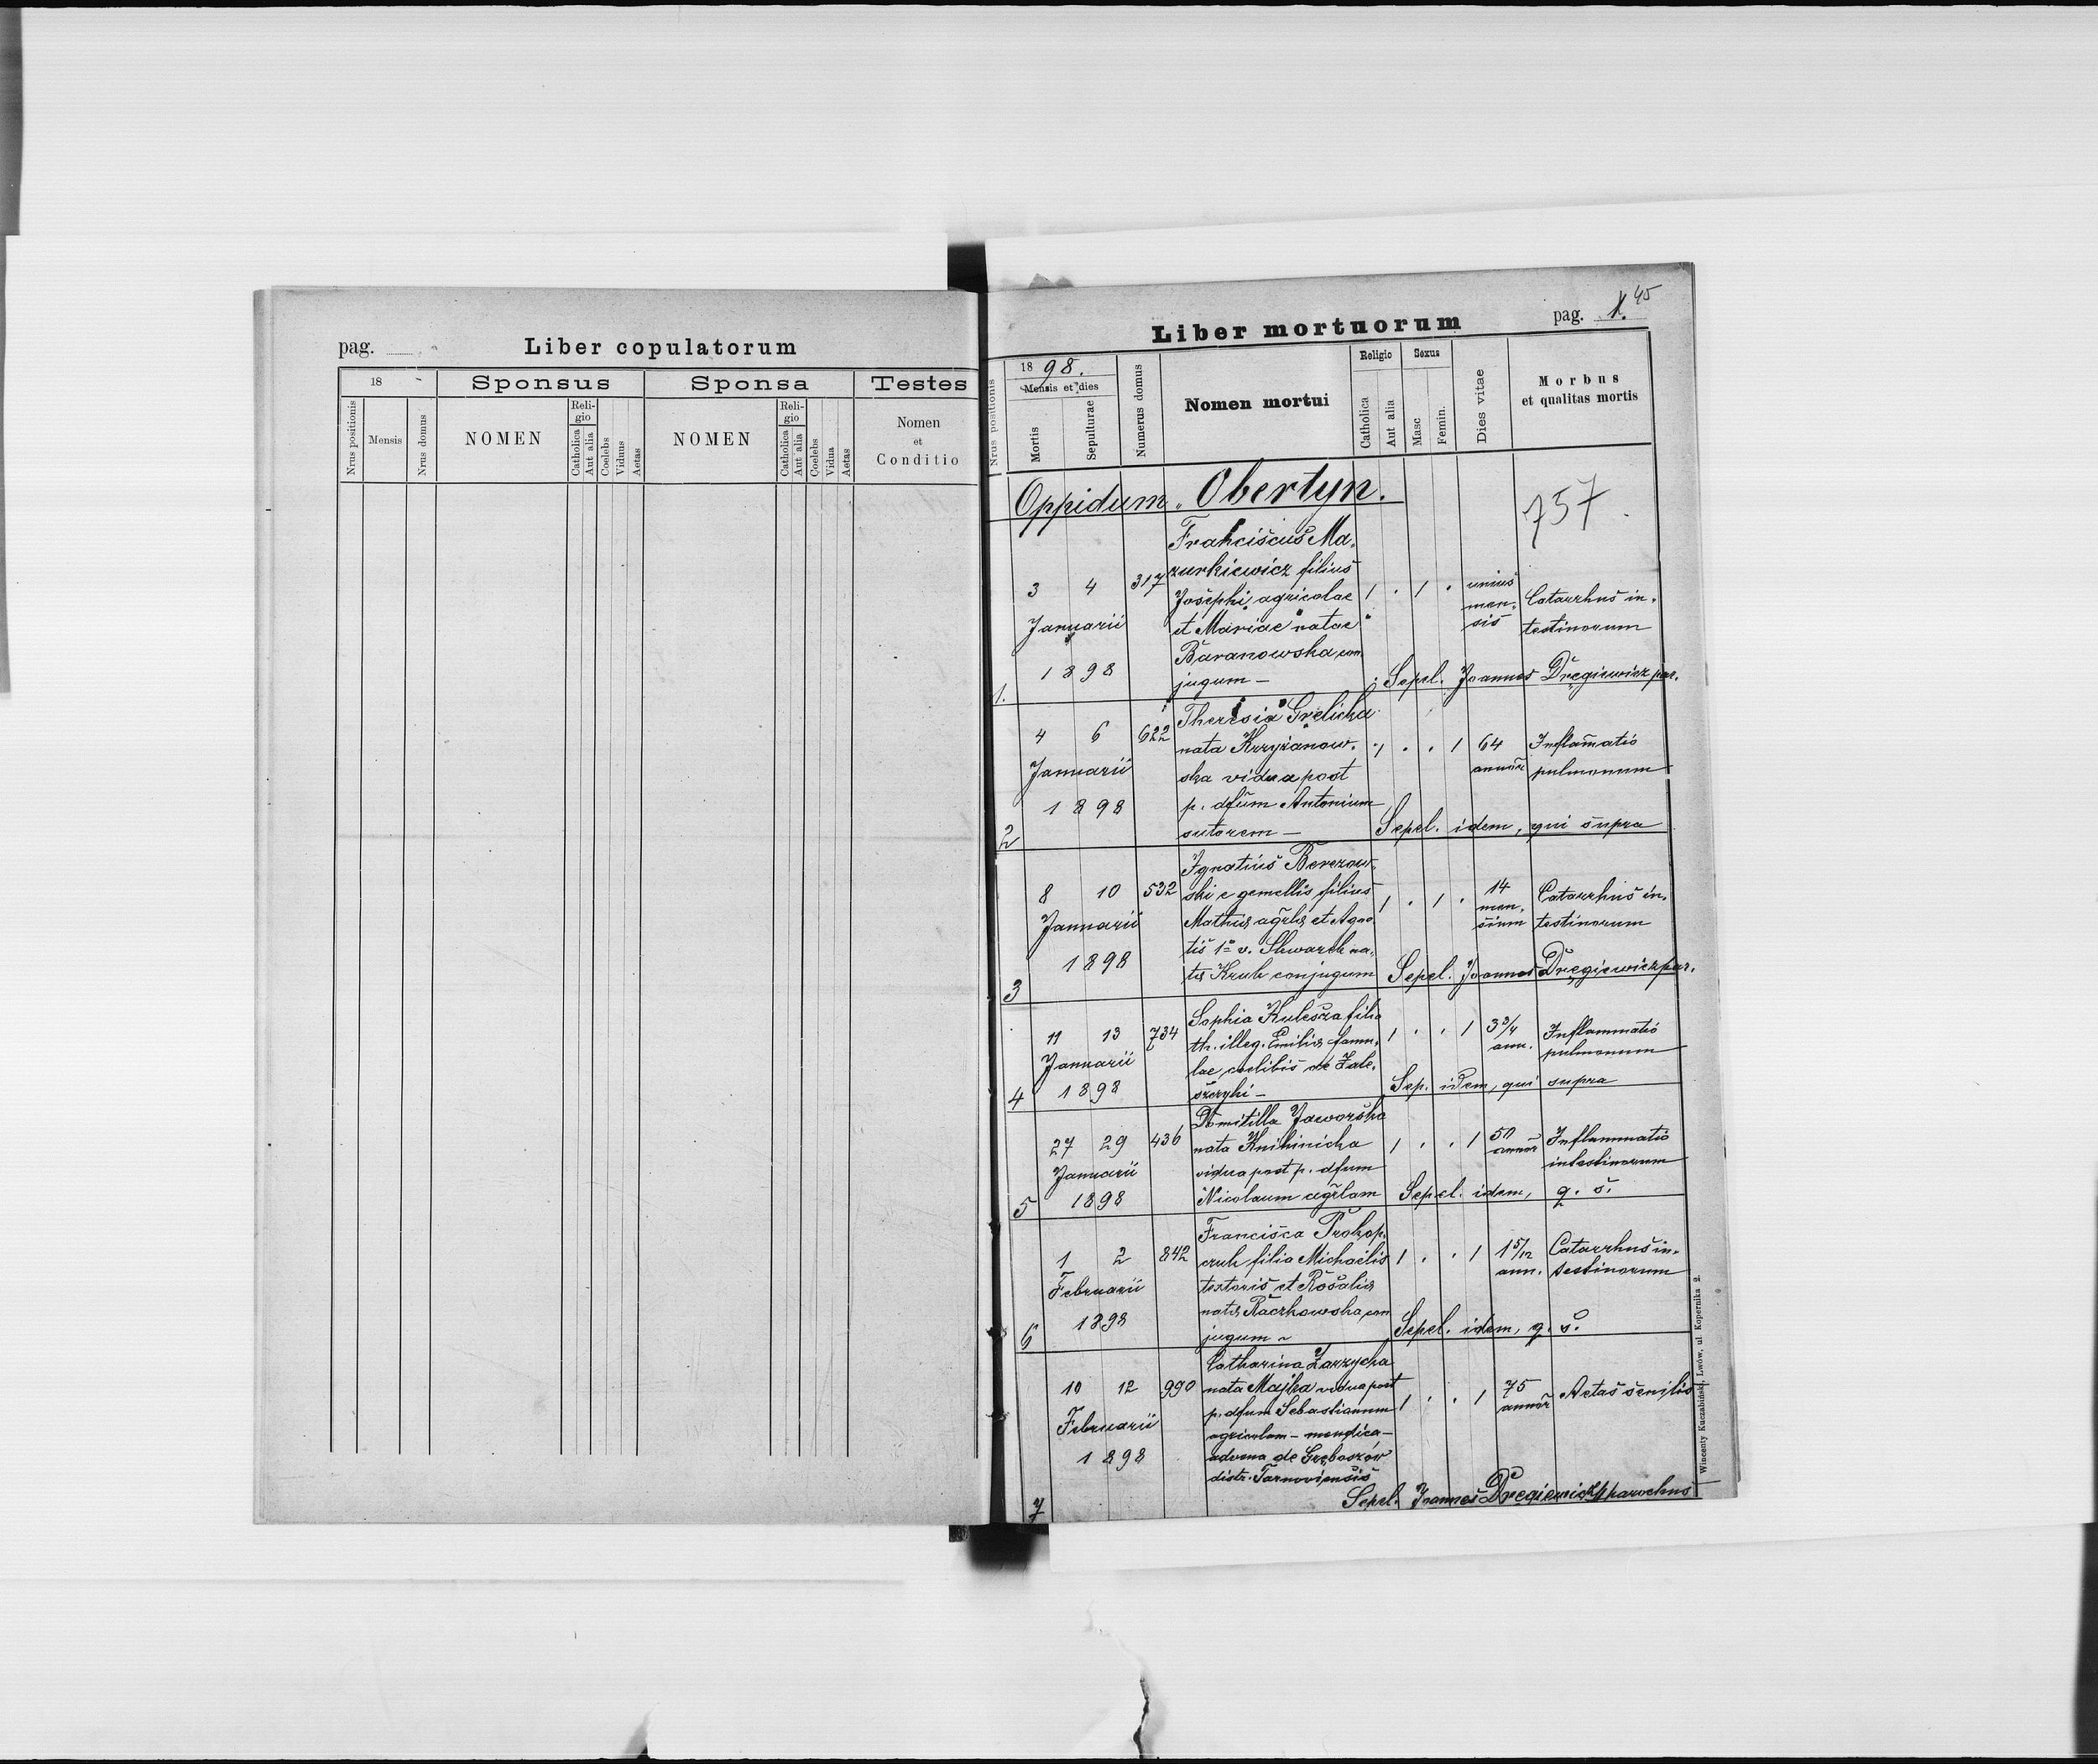 pag.
Liber copulatorum
18
Sponsus
Sponsa
Testes
Nrus positionis
Mensis
Nrus domus
NOMEN
Reli-
gio
Catholica
Aut alia
Coelebs
Viduus
Aetas
NOMEN
Reli-
gio
Catholica
Aut alia
Coelebs
Vidua
Aetas
Nomen
et
Conditio
Liber mortuorum
pag. 1. 45
Nrus positionis
1898.
Mensis et dies
Mortis
Sepulturae
Numerus domus
Nomen mortui
Religio
Catholica
Aut alia
Sexus
Masc
Femin.
Dies vitae
Morbus
et qualitas mortis
Oppidum Obertyn.
757
Franciscus Ma,
zurkiewicz filius
3 4 317 Josephi agricolae 1 . 1 . unius men, sis Catarrhus in,
Januarii et Mariae natae testinorum
Baranowska con,
1898 jugum –
1. Sepel. Joannes Dręgiewicz par.
Theresia Grelicka
4 6 622 nata Krzyżanow, 1 . . 1 64 Inflam̄atio
Januarii ska vidua post annōr pulmonum
1898 p. dfūm Antonium
2 sutorem – Sepel. idem, qui supra
Ignatius Berezow,
8 10 532 ski e gemellis filius 1 . 1 . 14 men, sium Catarrhus in,
Januarii et Agne testinorum
1898 tis 1º v. na,
3 conjugum Sepel. Joannes Dręgiewicz par.
Sophia Kulesza filia
11 13 734 th. illeg. famu, 1 . . 1 3 3/4 ann. Inflammatio
Januarii lae coelibis de Zale, pulmonum
4 1898 szczyki – Sep. idem, qui supra
Domitilla Jaworska
27 29 436 nata Knihinicka 1 . . 1 50 annōr Inflammatio
Januarii vidua post p. dfum intestinorum
5 1898 Nicolaum agrlam Sepel. idem, q. s.
Francisca Prokop,
1 2 842 czuk filia Michaelis 1 . . 1 1 5/12 ann. Catarrhus in,
Februarii textoris et Rosaliæ testinorum
1898 natæ Raczkowska con
6 jugum ~ Sepel. idem, q. s.
Catharina Zarzycka
10 12 990 nata Majka vidua post 1 . . 1 75 annōr Aetas senilis
Februarii p. dfum Sebastianum
agricolam – mendica –
1898 advena de Gręboszów
distr. Tarnoviensis
7 Sepel. Joannes Dręgiewicz parochus
Wincenty Kuczabiński, Lwów, ul. Kopernika 2.